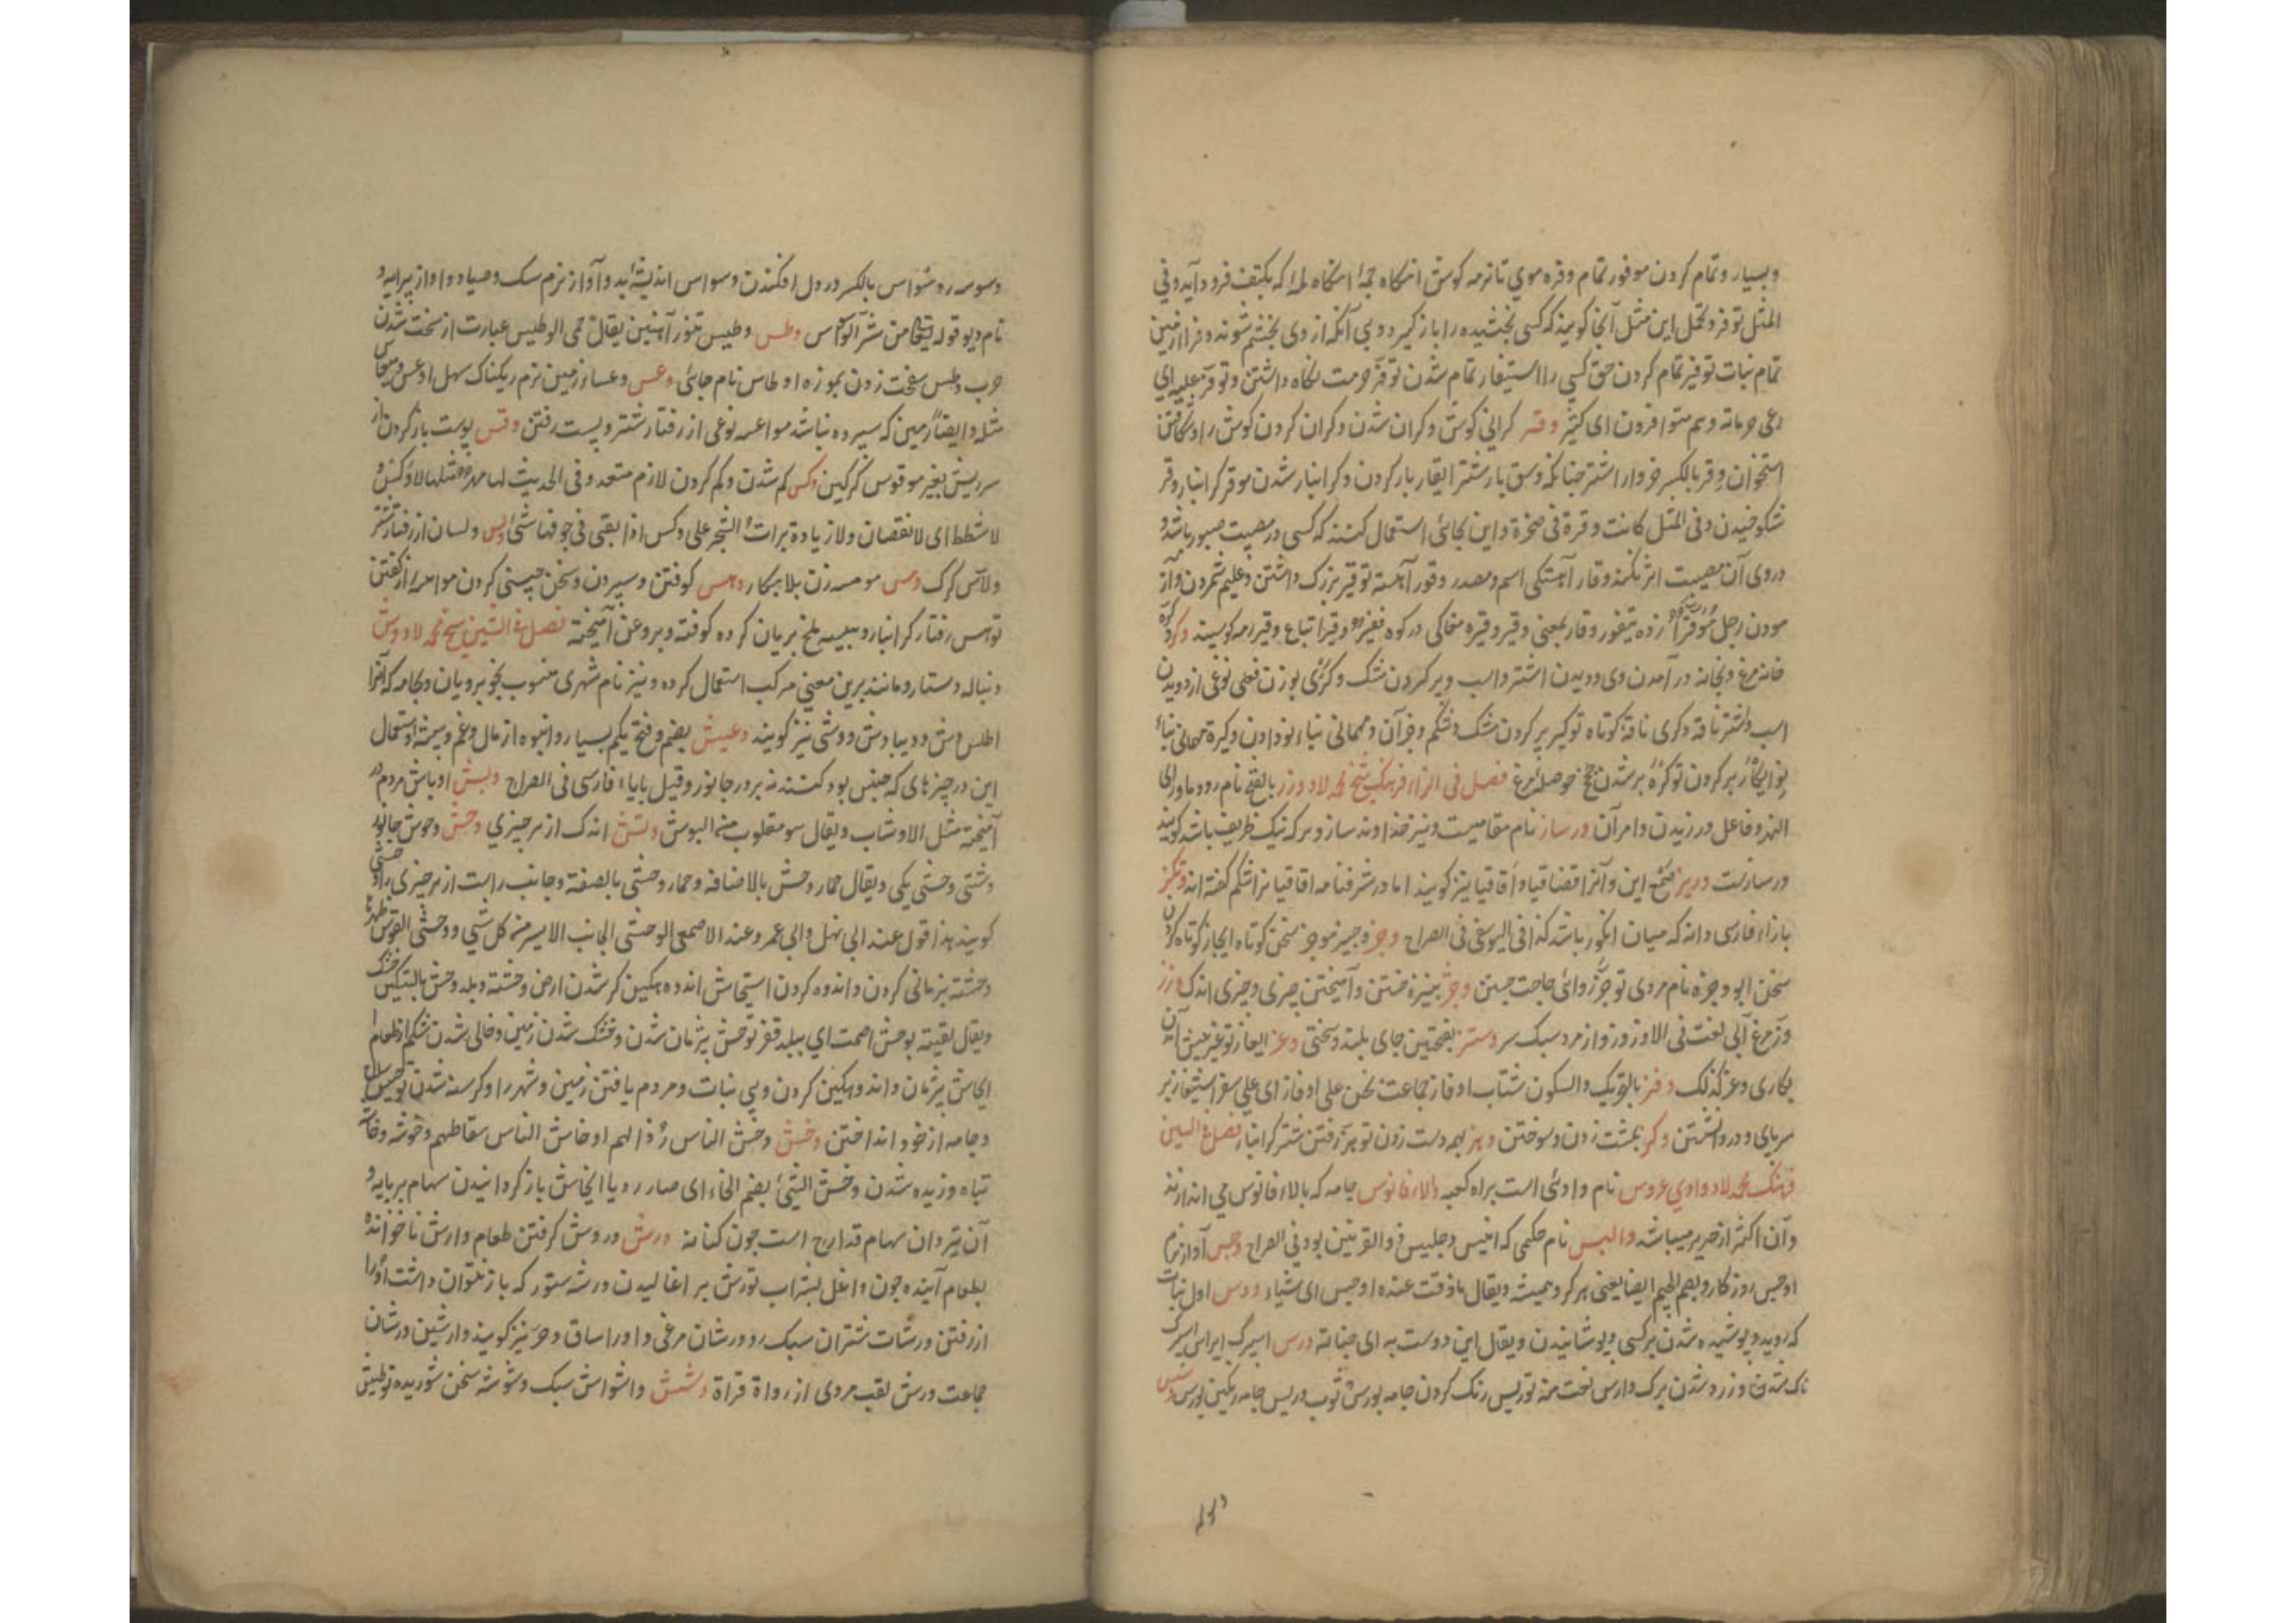 وبسیار و تمام کردن موفور تمام وفره موی تا نرمه کوش آنکاه جمه آنکاه لمه که بکتف فرود آید وفی
المثل توفر وتحمل این مثل آنجا کویند که کسی بخشیده را باز کیرد و بی آنکه از وی بخشم شوند وفرا از زمین
تمام نبات توفیر تمام کردن حق کسی را استیفار تمام شدن توفر حرمت نکاه داشتن و توفر علیه ای
رعی حرماته وهم متوافرون ای کثیر وقر کرانی کوش و کران شدن و کران کردن کوش را و شکافتن
استخوان وقر بالکسر خروار اشتر چنانکه وسق بار شتر ایقار بار کردن و کرانبار شدن موقر کرانبار وقر
شکوخیدن وفی المثل کانت وقرة فی صخرة و این بجائی استعمال کنند که کسی در مصیبت صبور باشد و
در وی آن مصیبت اثر نکند وقار آهستکی اسم ومصدر وقور آهسته توقیر بزرک داشتن و علیم شمردن و آز
مودن رجل موقر زده یتفور وقار بمعنی وقیر وقیره مغاکی در کوه فقیر وقیر اتباع وقیر رمه کوسپند وکر
خانه مرغ و بخانه در آمدن وی و دویدن اشتر و اسب و پر کردن مشک وکری بوزن فعلی نوعی از دویدن
اسب و شتر ناقة وکری ناقۀ کوتاه توکیر پر کردن مشک و شکم و جز آن و مهمانی بناء نو دادن وکیرة مهمانی بناء
نو ایکار پر کردن توکر پر شدن حوصلۀ مرغ فصل فی الزاء فرهنک شیخ محمد لاد ورز بالفتح نام رود ماوراء
النهر و فاعل ورزیدن و امر آن ورساز نام مقامیست و نیز خداوند ساز و هر که نیک ظریف باشد کویند
ورسازست وریز صمغ این و آنرا قضاقیا و اقاقیا نیز کویند اما در شرفنامه اقاقیا نراشکم کفته اند وتکز
بازاء فارسی دانه که میان انکور باشد کذا فی الیوسفی فی الصراح وجز وجیز موجز سخن کوتاه ایجاز کوتاه کردن
سخن ابو وجزه نام مردی توجز روائی حاجت جستن وخز بنیزه خستن و آمیختن چیزی و چیزی اندک وزز
وز مرغ آبی لغت فی الاوز وزواز مرد سبک سر وشز بفتحتین جای بلند و سختی وعز ایعاز توعیز پیش آمدن
بکاری وعز کذلک وفز بالتحریک والسکون شتاب اوفاز جماعت نحن علی اوفاز ای علی سفر استیفاز بر
سرپای و در نشستن وکز بمشت زدن و سوختن وهز بهمه دست زدن توهز رفتن شتر کرانبار فصل فی السین
فرهنک محمد لاد وادی عروس نام وادئی است براه کعبه والاء فانوس جامه که بالاء فانوس می اندازند
و آن اکثر از حریر میباشد والیس نام حکیمی که انیس و جلیس ذوالقرنین بود فی الصراح وجس آواز نرم
اوجس روزکار و بضم الجیم ایضا یعنی هر کز و همیشه ویقال ما ذقت عنده اوجس ای شیاء ودس اول نبات
که روید و پوشیده شدن بر کسی و پوشانیدن ویقال این دوست به ای خبأته ورس اسپرک ایراس اسپرک
ناک شدن و زرد شدن برک وارس نعت منه توریس رنک کردن جامه بورس ثوب وریس جامه رنکین بورس
وسوسه وسواس بالکسر در دل افکندن وسواس اندیشۀ بد و آواز نرم سک و صیاد و آواز پیرایه و
نام دیو قوله تعالی من شر الوسواس وطس وطیس تنور آهنین یقال حمی الوطیس عبارت از سخت شدن
حرب وطس سخت زدن بموزه اوطاس نام جائی وعس وعساء زمین نرم ریکناک سهل اوعس میعاس
مثله و ایضا زمین که سپرده نباشد مواعسه نوعی از رفتار شتر و پست رفتن وقس پوست باز کردن از
سر ریش بغیر موقوس کرکین وکس کم شدن و کم کردن لازم متعد وفی الحدیث لها مهر مثلها لا وکس و
لا شطط ای لا نقصان ولا زیادة برات الشجة علی وکس اذا بقی فی جوفها شئ ولس ولسان از رفتار شتر
ولاس کرک ومس مومسه زن بلابهکار وهس کوفتن و سپردن و سخن چینی کردن مواهسه راز کفتن
توهس رفتار کرانبار وهیسه ملخ بریان کرده کوفته و بروغن آمیخته فصل فی الشین شیخ محمد لاد وش
دنباله دستار و مانند برین معنی مرکب استعمال کرده و نیز نام شهری منسوب بخوبرویان و بجامه که آنرا
اطلس وش و دیبا وش و وشی نیز کویند وعیش بضم و فتح یکم بسیار و انبوه از مال و غم و بیشه و استعمال
این در چیزهای که جنس بود کنند نه بر ور جانور و قیل بابا فارسی فی الصراح وبش اوباش مردم در
آمیخته مثل الاوشاب ویقال هو مقلوب من البوش وتش اندک از هر چیزی وحش وحوش جانور
دشتی وحشی یکی ویقال حمار وحش بالاضافه و حمار وحشی بالصفة و جانب راست از هر چیزی را وحشی
کویند هذا قول عند ابی زید و ابی عمر و عند الاصمعی الوحشی الجانب الایسر من کل شی و وحشی القوس ظهرها
وحشته پژمانی کردن و اندوه کردن استیحاش اندوهکین کر شدن ارض وحشة و بلد وحش بالتسکین خشک
ویقال لقیته بوحش اصمت ای ببلد قفر توحش پژمان شدن و خشک شدن زمین و خالی شدن شکم از طعام
ایحاش پژمان و اندوهکین کردن و بی نبات و مردم یافتن زمین و شهر را و کرسنه شدن توحیش سلاح
و جامه از خود انداختن وخش وخش الناس رذالهم اوخاش الناس سقاطهم وخوشه وخاشة
تباه و زبده شدن وخش الشئ بضم الخاء ای صار ردیا ایخاش باز کردانیدن سهام بر پایه و
آن تیردان سهام قداح است چون کنانه ورش وروش کرفتن طعام وارش ناخوانده
بطعام آینده چون واغل بشراب توریش بر اغالیدن ورشه ستور که باز نتوان داشت او را
از رفتن ورشات شتران سبک رو ورشان مرغی و او را ساق و حر نیز کویند وارشین ورشان
جماعت ورش لقب مردی از رواة قراة وشش وشواش سبک وشوشه سخن شوریده توطیش